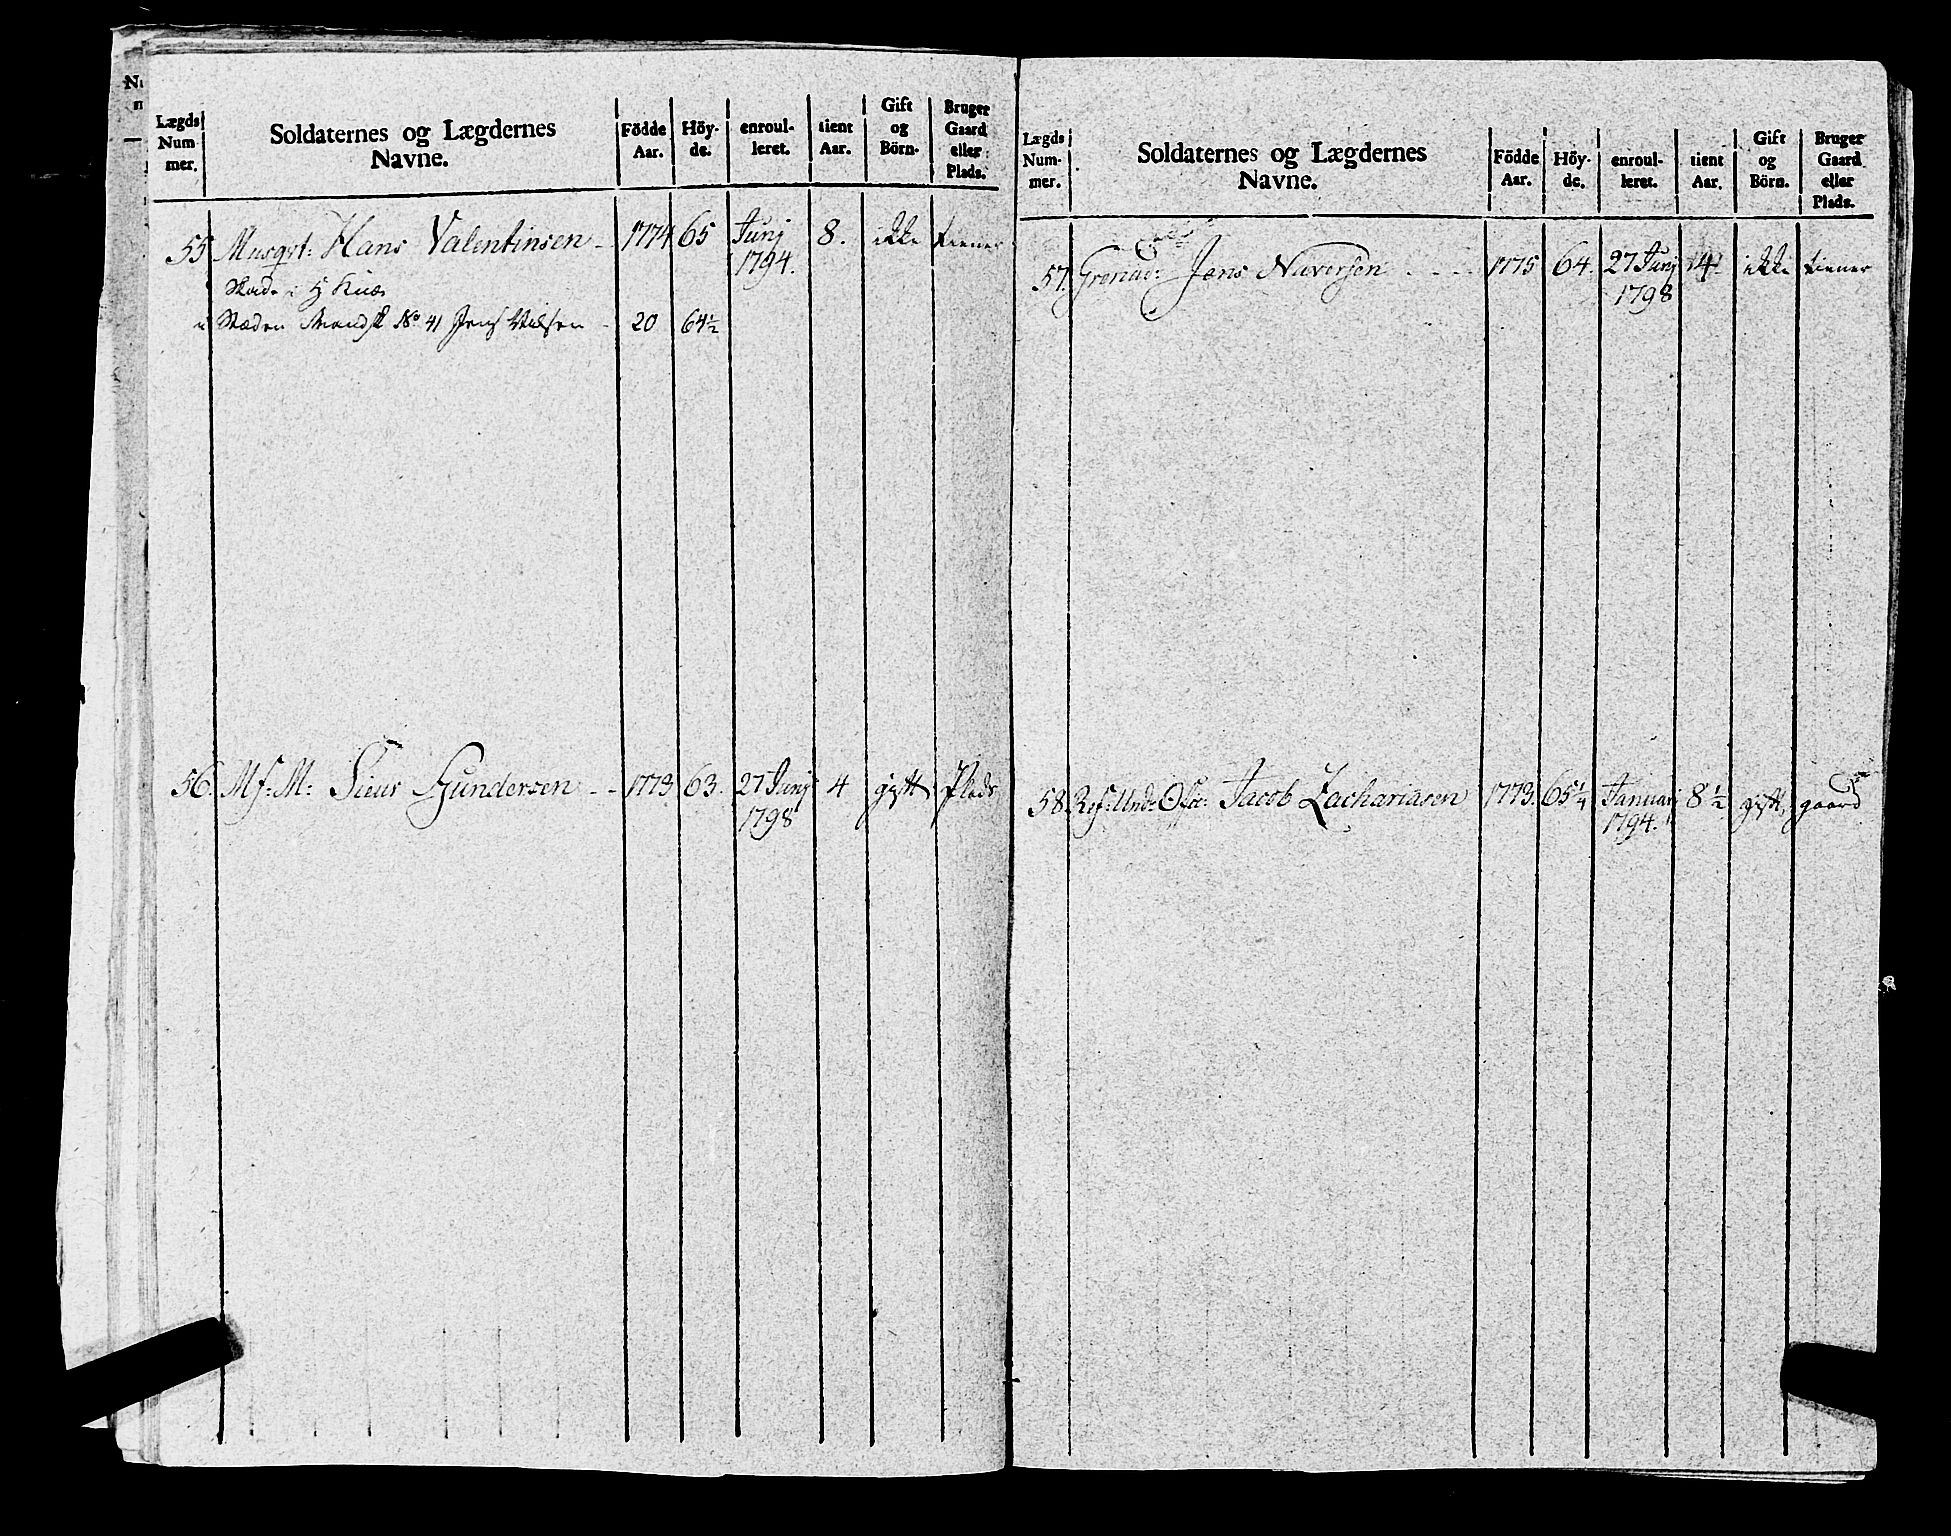 Lægds Nummer. Soldaternes og Lægdernes Navne. Födde Aar. Höyde. enroulleret. tient Aar. Gift og Börn. Bruger Gaard eller Plads.
55 Musqrt: Hans Valentinsen - 1774 65 Junj 1794. 8. ikke tiener
Skade i Knæ
i Stæden Mandsk No 41 Jens Nilsen - 20 64½
56. Ms: M: Siur Gundersen - - 1773 63. 27 Junj 1798 4 gift Plads
Lægds Nummer. Soldaternes og Lægdernes Navne. Födde Aar. Höyde. enroulleret. tient Aar. Gift og Börn. Bruger Gaard eller Plads.
57. Grenad: Jens Nuversen - - - 1775 64. 27 Junj 1798 4 ikke tiener
58. Ref: Und: Ofic: Jacob Zachariasen 1773. 65¼ Januarj 1794. 8½ gift, gaard